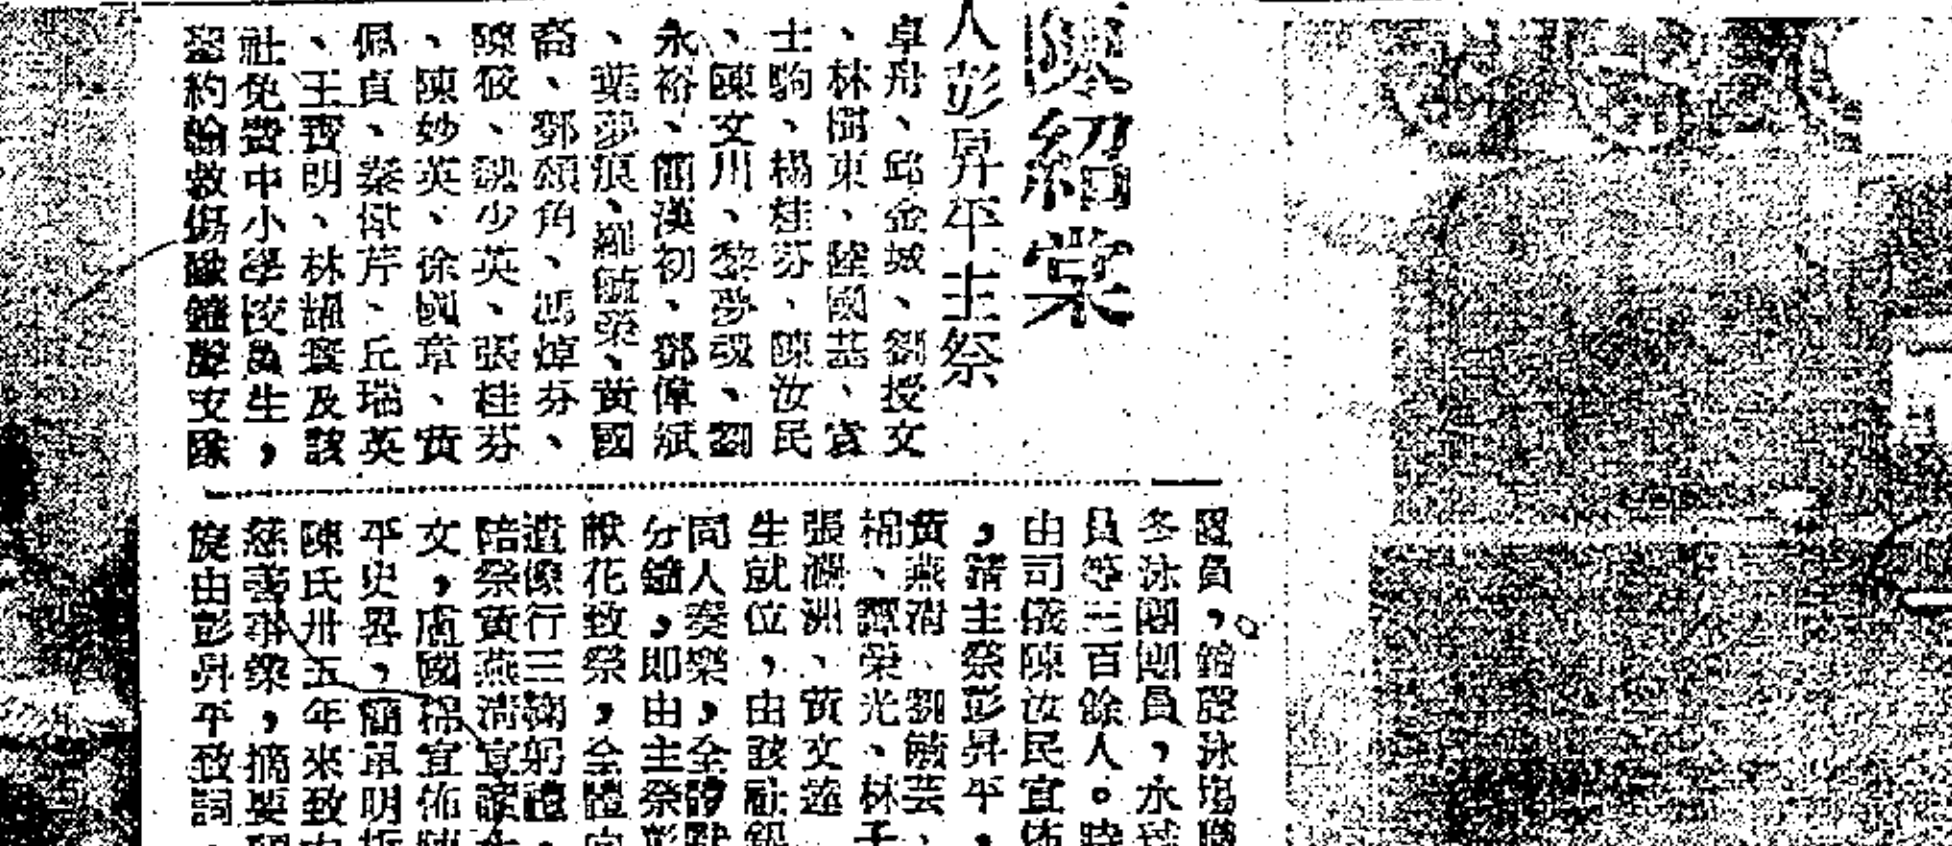 陳紹棠
人彭昇平主祭
卓舟、邱金城、劉授文
、林樹東、陸國基、袁
士駒、楊桂芬、陳汝民
、陳文川、黎夢魂、劉
永裕、簡漢初、鄧偉斌
、葉夢痕、羅毓榮、黃國
裔、鄧頌角、馮焯芬、
陳筱、魏少英、張桂芬
、陳妙英、徐國章、黃
佩貞、秦 芹、丘瑞英
、王寶明、林 及該
社免費中小學校員生,
聖約翰救傷隊鐘聲支隊
員,鐘聲泳場職
冬泳團團員,水球
員等三百餘人。時
由司儀陳汝民宣佈
,請主祭彭昇平,
黃燕清、劉毓芸、
棉、譚榮光、林子
張瀾洲、黃文
生就位,由該社銀
同人奏樂,全體默
分鐘,即由主祭彭
獻花致祭,全體向
遺像行三鞠躬禮,
陪祭黃燕清宣讀
文,盧國棉宣佈陳
平史畧,簡單明
陳氏卅五年來致力
慈善事業,摘要
旋由彭昇平致詞,